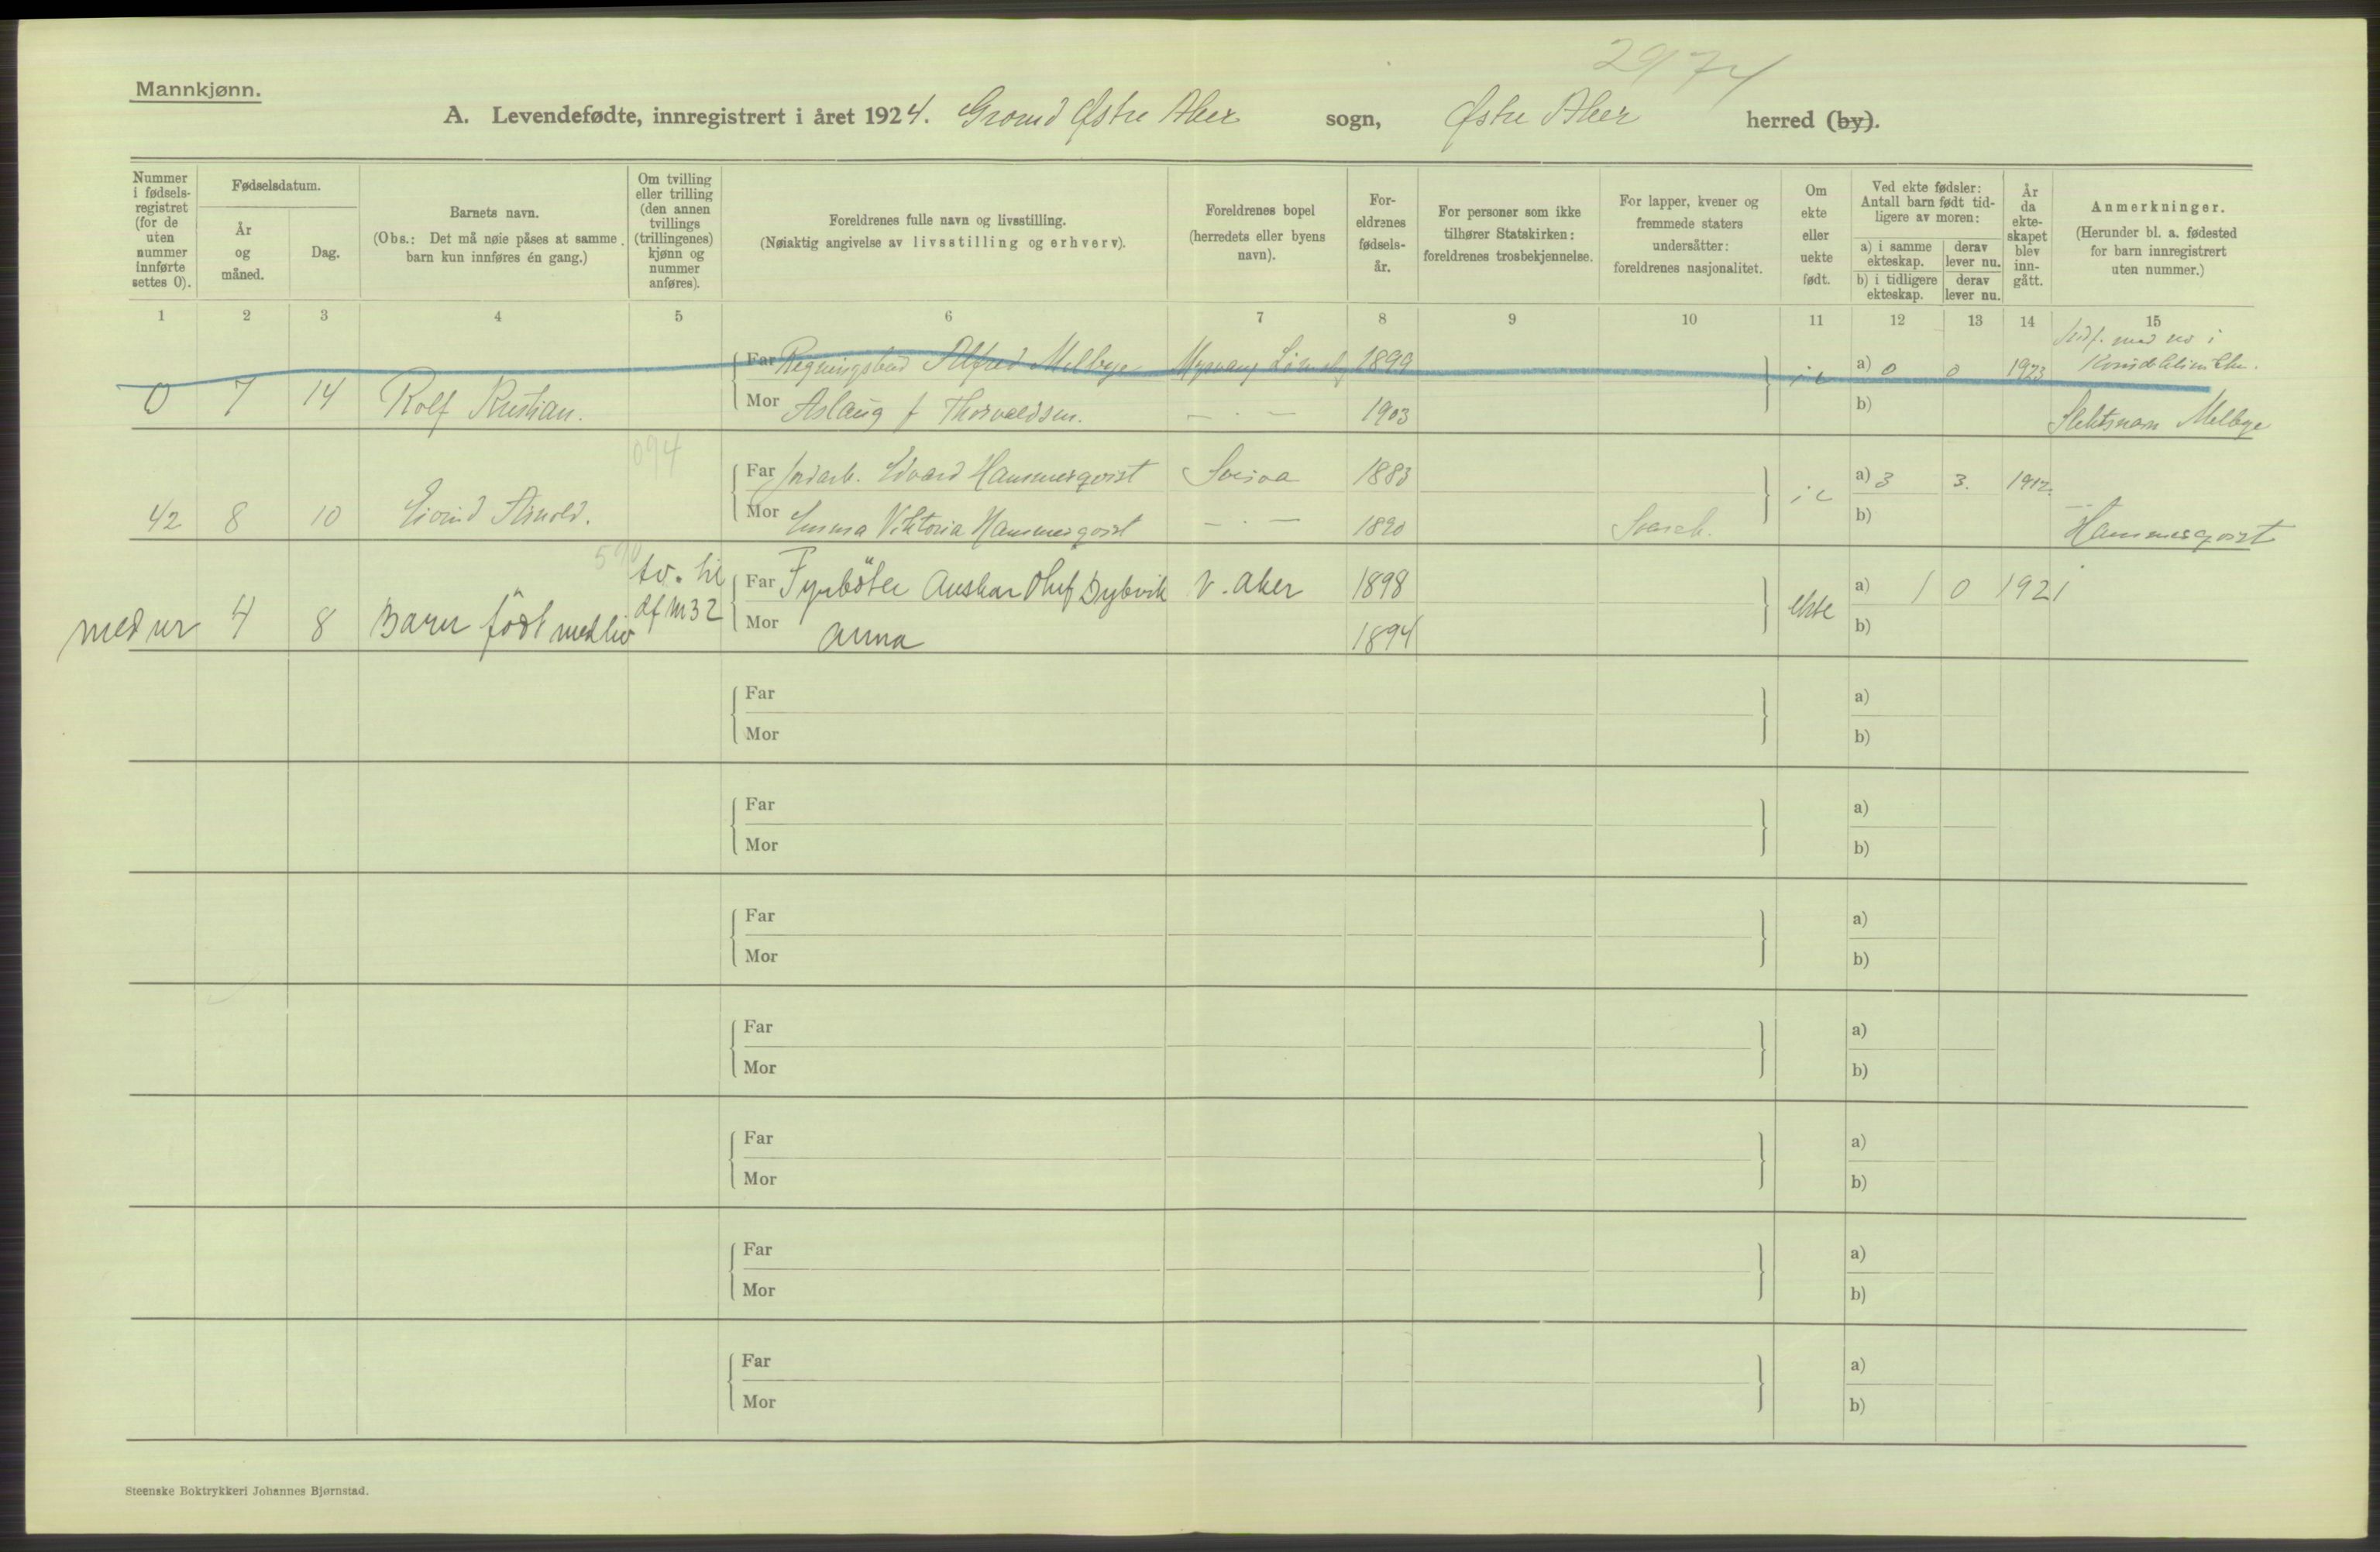 2974
Mannkjønn.
A. Levendefødte, innregistrert i året 1924. Grorud Østre Aker sogn, Østre Aker herred (by).
Nummer i fødsels-registret (for de uten nummer innførte settes 0).
Fødselsdatum.
År og måned.
Dag.
Barnets navn.
(Obs.: Det må nøie påses at samme barn kun innføres én gang.)
Om tvilling eller trilling (den annen tvillings (trillingenes) kjønn og nummer anføres).
Foreldrenes fulle navn og livsstilling.
(Nøiaktig angivelse av livsstilling og erhverv).
Foreldrenes bopel (herredets eller byens navn).
For-eldrenes fødsels-år.
For personer som ikke tilhører Statskirken: foreldrenes trosbekjennelse.
For lapper, kvener og fremmede staters undersåtter: foreldrenes nasjonalitet.
Om ekte eller uekte født.
Ved ekte fødsler: Antall barn født tid-ligere av moren:
a) i samme ekteskap. derav lever nu.
b) i tidligere ekteskap. derav lever nu.
År da ekte-skapet blev inn-gått.
Anmerkninger.
(Herunder bl. a. fødested for barn innregistrert uten nummer.)
1 2 3 4 5 6 7 8 9 10 11 12 13 14 15
Far Regningsbud Alfred Melbye 1899 a) 0 0 1923
0 7 14 Rolf Kristian. Mor Aslaug f Thorvaldsen. — . — 1903 b) Slektsnavn Melbye
094
Far Jordarb. Edvard Hammerqvist 1883 a) 3 3. 1912.
42 8 10 Eivind Arnold. Mor Emma Viktoria Hammerqvist — . — 1890 Svensk. b) Hammerqvist
tv. til Far Fyrböter Anskar Oluf Dybvik V. Aker 1898 ekte a) 1 0 1921
med nr 4 8 Barn födt med liv df m 32 Mor Anna 1894 b)
Far a)
Mor b)
Far a)
Mor b)
Far a)
Mor b)
Far a)
Mor b)
Far a)
Mor b)
Far a)
Mor b)
Far a)
Mor b)
Steenske Boktrykkeri Johannes Bjørnstad.